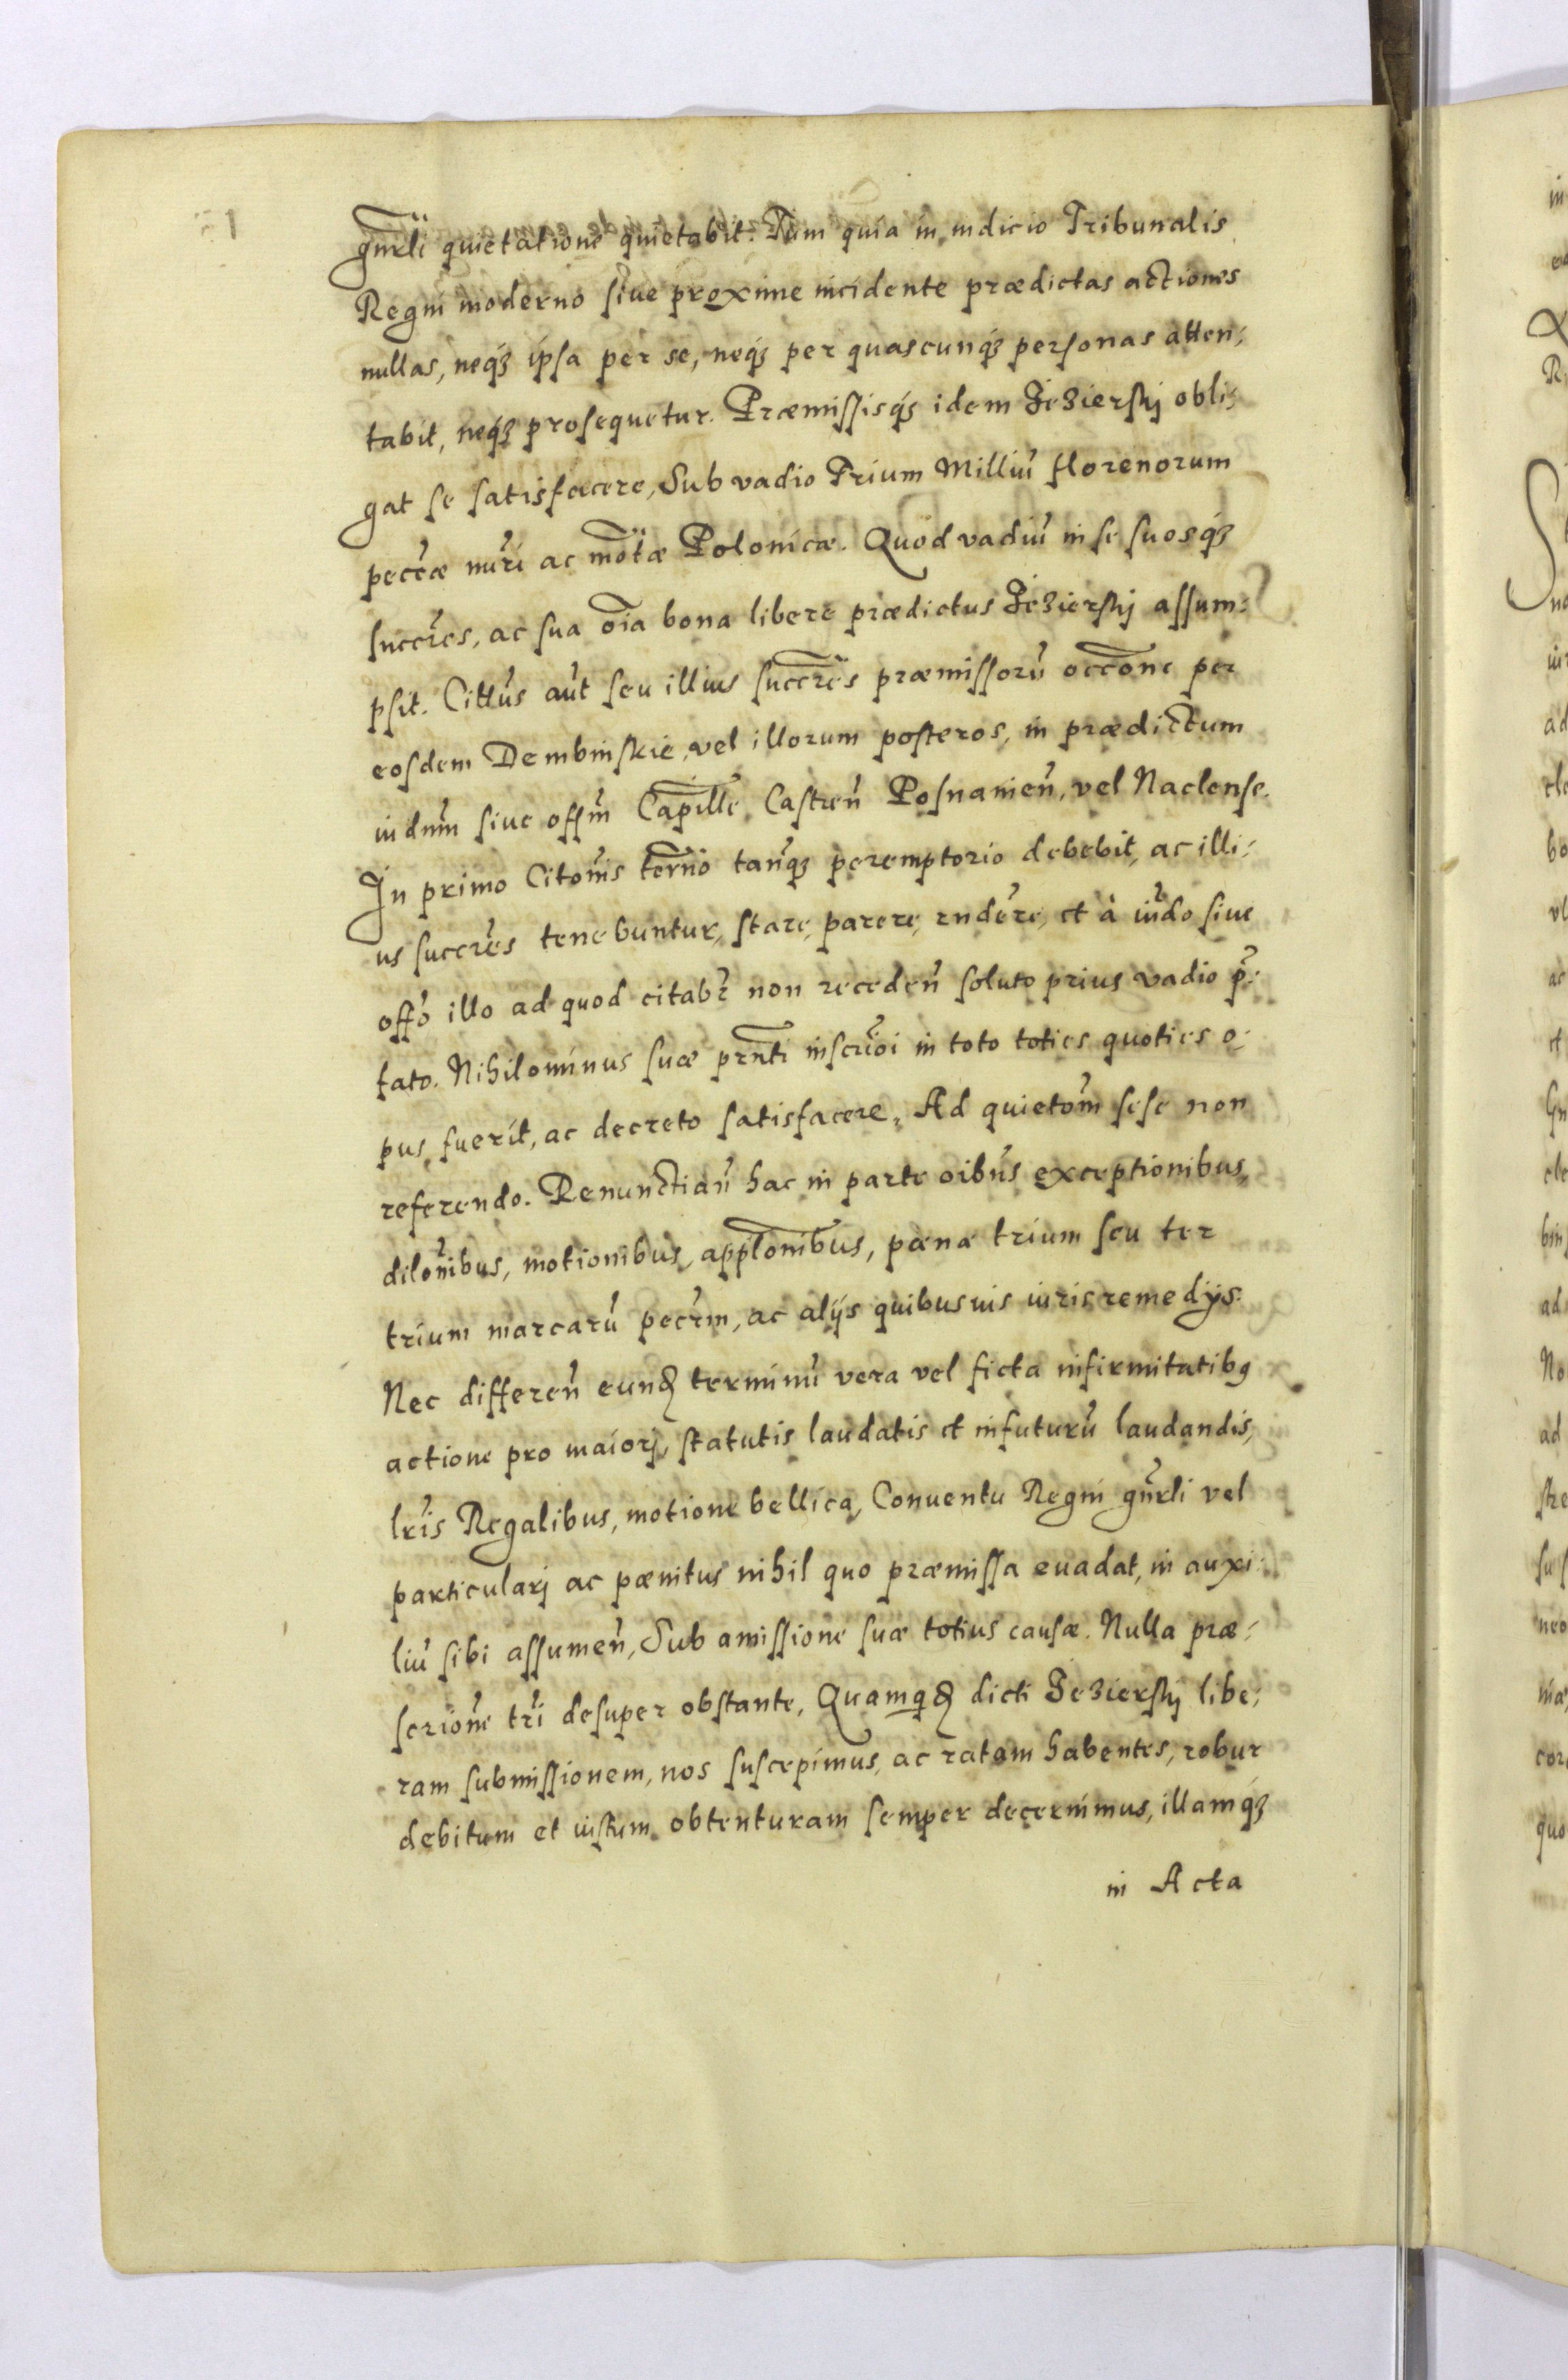 gnrli quietatione quietabit. Tum quia in iudicio Tribunalis
Regni moderno siue proxime incidente prædictas actiones
nullas, neq3 ipsa per se, neq3 per quascunq3 personas atten:
tabit, neq3 prosequetur. Præmissisq3 idem Jezierskj obli:
gat se satisfacere, Sub vadio Trium Milliū florenorum
peccæ nūri ac motæ Polonicæ. Quod vadiū in se suosq3
succres, ac sua oīa bona libere prædictus Jezierskj assum:
psit. Cittus aūt seu illius succres præmissorū occone per
eosdem Dembinskie, vel illorum posteros, in prædictum
iudnm siue offm Capille, Castren Posnanien, vel Naclense.
In primo Citonis terno tanq3 peremptorio debebit, ac illi:
us succres tenebuntur, stare, parere, rndere, et à iudo siue
offo illo ad quod citabr non receden soluto prius vadio p:
fato. Nihilominus suæ prnti inscrioi in toto toties quoties o:
pus fuerit, ac decreto satisfacere, Ad quietom sese non
referendo. Renunctian hac in parte oibus exceptionibus,
dilonibus, motionibus, applonibus, pœna trium seu ter
trium marcarū pecrm, ac alijs quibusuis iuris remedijs.
Nec differen eund terminū vera vel ficta infirmitatibus
actione pro maiorj, statutis laudatis et infuturū laudandis,
lris Regalibus, motione bellica, Conuentu Regni gnrli vel
particularj ac pœnitus nihil quo præmissa euadat, in auxi:
liū sibi assumen, Sub amissione suæ totius causæ. Nulla præ:
scrione tri desuper obstante, Quamqd dicti Jezierskj libe:
ram submissionem, nos suscepimus, ac ratam habentes, robur
debitum et iustum obtenturam semper decernimus, illamq3
in Acta